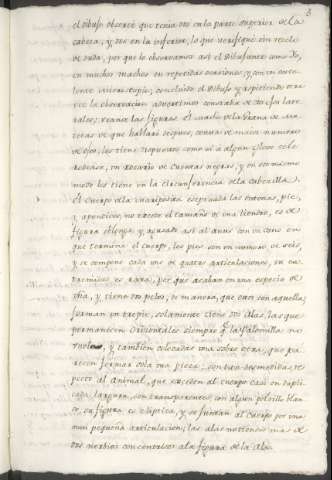 3
el Dibujo observé que tenia dos en la parte superior de la
cabeza, y dos en la inferior, lo que verifiqué sin rezelo
de duda, por que lo observamos asi el Dibujante como Yo,
en muchos machos en repetidas ocasiones, y con un exce-
lente Microscopio; concluido el Dibujo y repitiendo otra
vez la observacion advertimos constaba de dos ojos late-
rales; vease las figuras. El macho de la Grana de
de que hablaré despues, consta de mayor numero
de ojos, los tiene dispuestos como si á algun
un Rosario de Cuentas negras, y en ese mismo
modo los tiene en la circunferencia de la Cabecilla.
El Cuerpo de la mariposita exceptuada las antenas, pies,
y apendices, no excede el tamaño de una liendre, es de
figura oblonga, y aguzado así al anus con un cono en
que termina el cuerpo, los pies son en numero de seis,
y se compone cada uno de quatro articulaciones, su ex-
tremidad es rara, por que acaban en una especie de
uña, y tiene dos pelos, de manera, que casi con aquella
forman un tres pie, solamente tiene dos Alas, las que
permanecen Orizontales siempre que la Palomilla no
vuele, y tambien colocadas una sobre otra, que pa-
recen formar sola una pieza: son tan desmedidas, res-
pecto al animal, que exceden al cuerpo casi en dupli-
cada largura, son transparentes con algun polvillo blan-
co, su figura es elíptica, y se juntan al Cuerpo por una
muy pequeña articulacion; las alas no tienen mas de
dos nervios con concurso a la figura de la Ala.